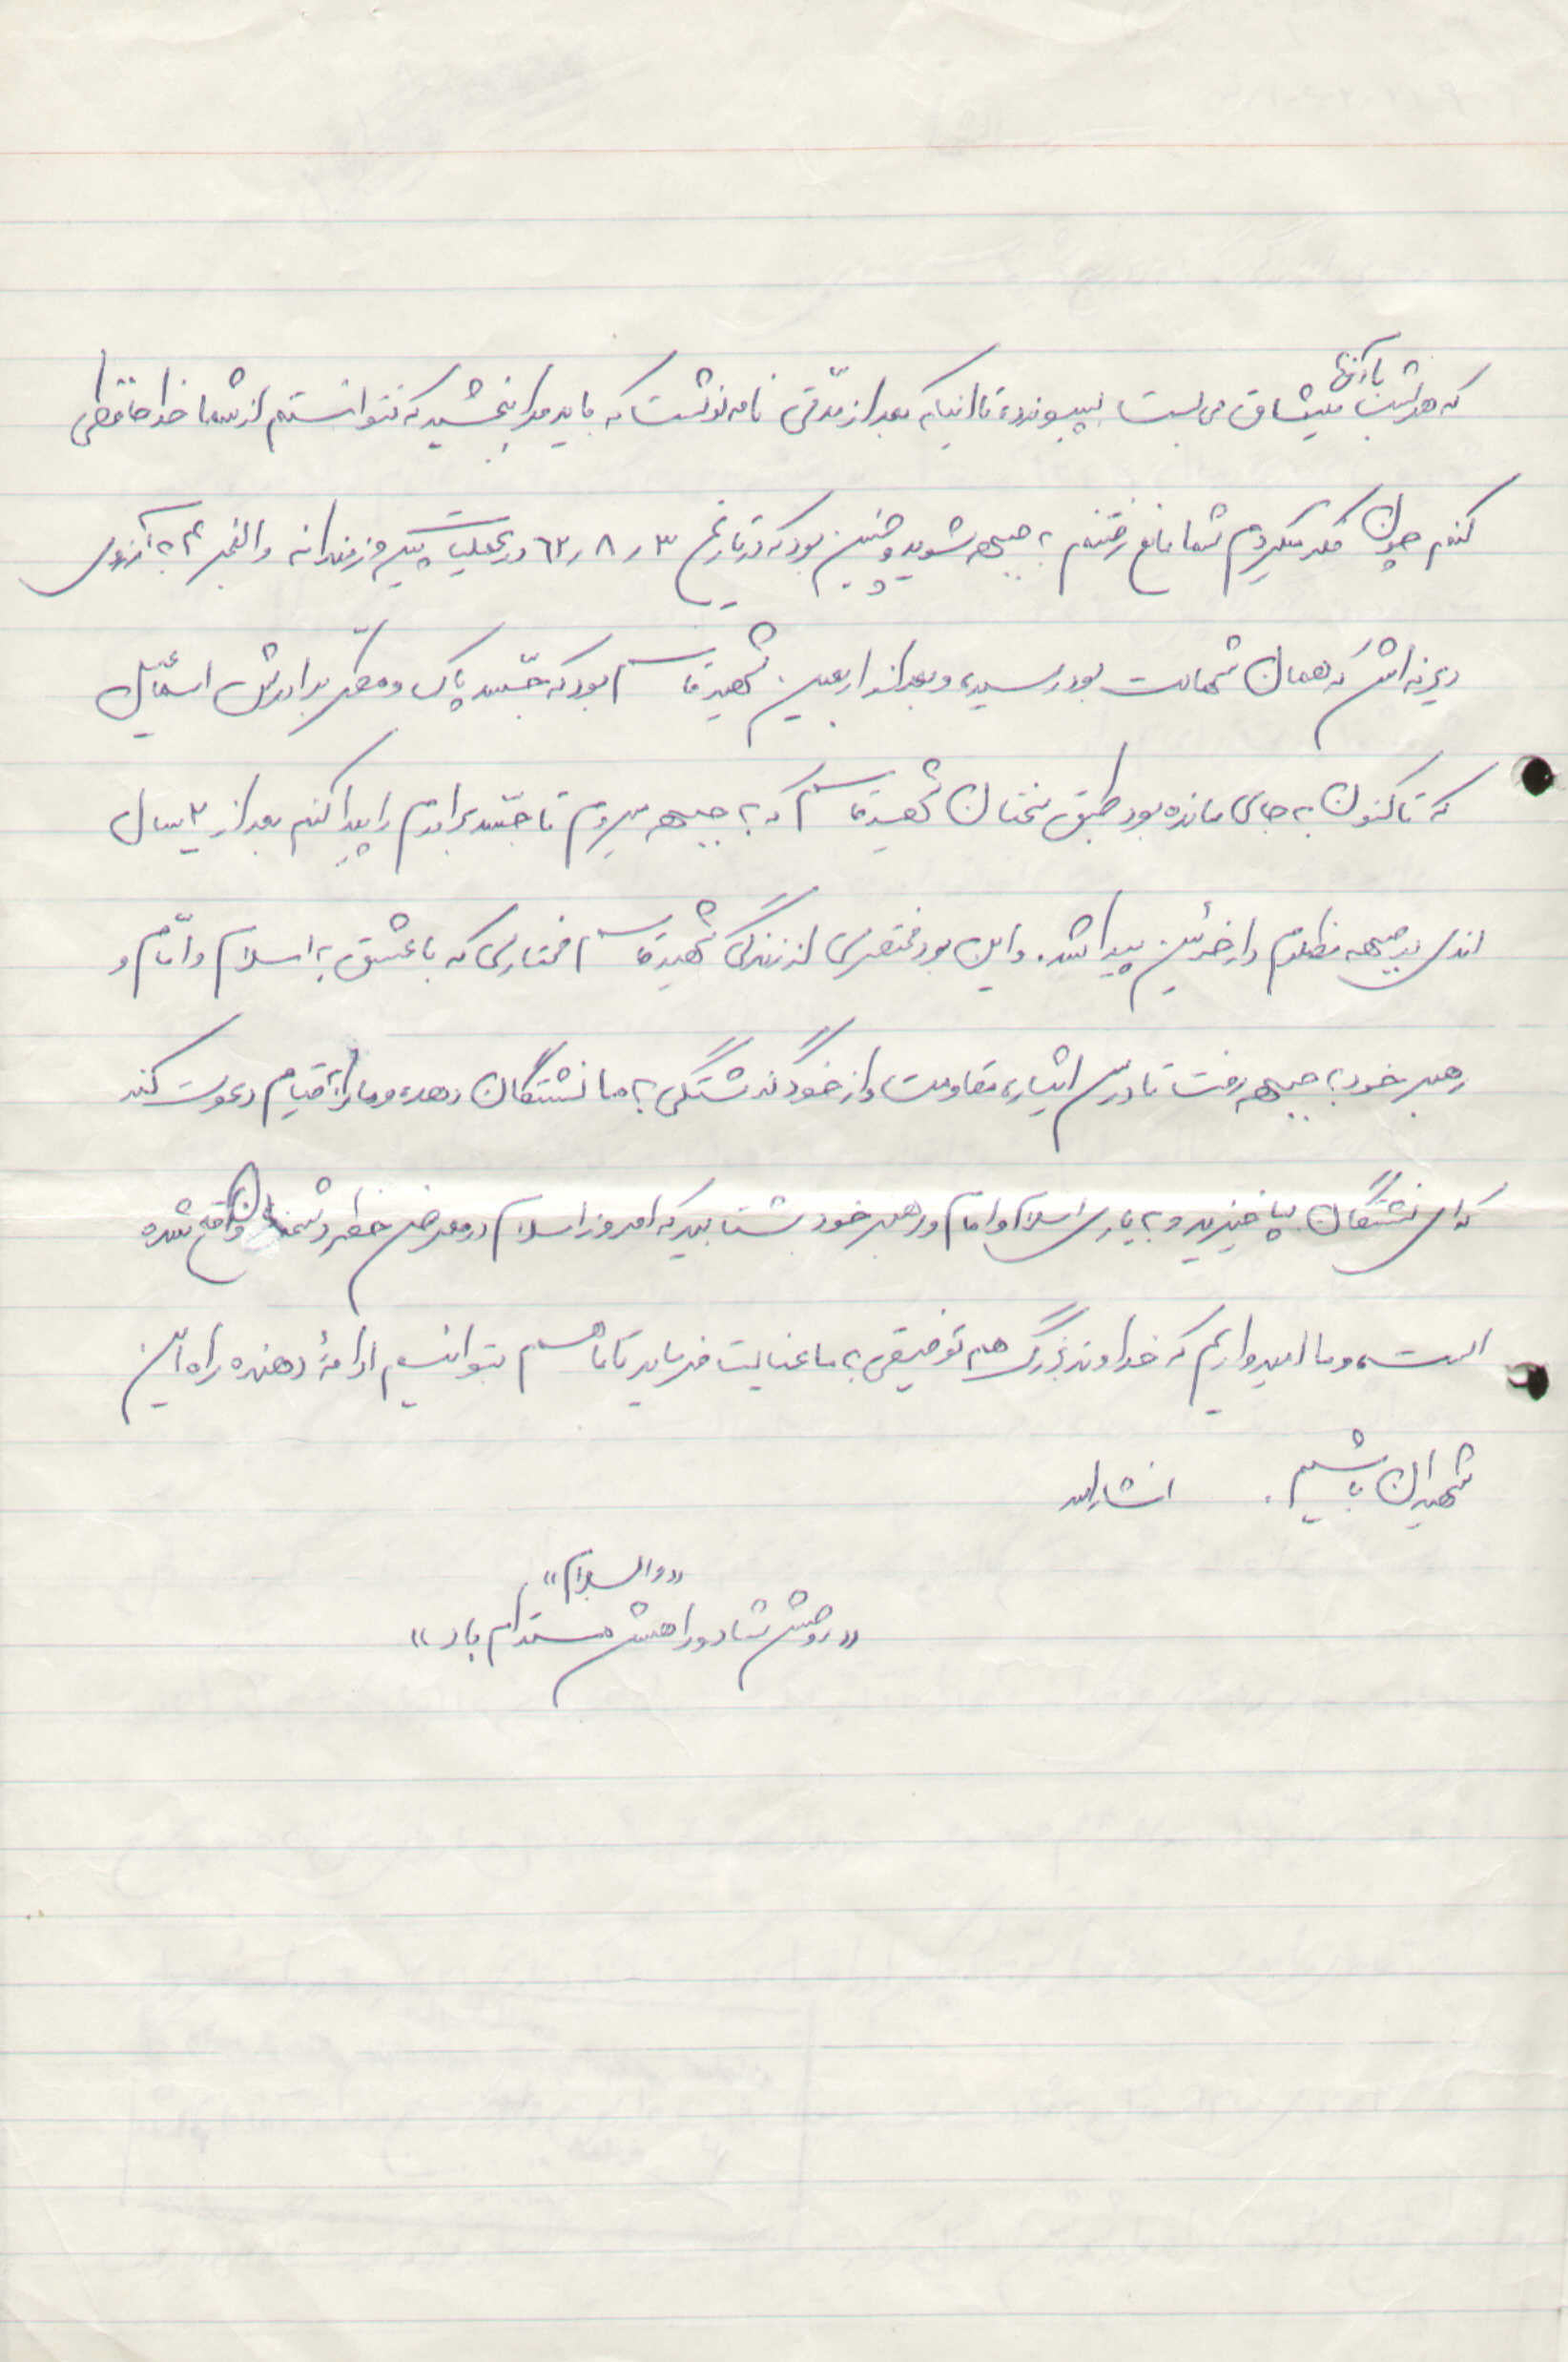 با آنها
که هر شب میثاق می بست بپیوندد، تا اینکه بعد از مدّتی نامه نوشت که باید مرا ببخشید که نتوانستم از شما خداحافظی
کنم چون فکر میکردم شما مانع رفتنم به جبهه شوید و چنین بود که در تاریخ ۶۲٫۸٫۳ در عملیات پیروزمندانه والفجر ۴ به آرزوی
دیرینه اش که همان شهادت بود رسید، و بعد از اربعین شهید قاسم بود که جسد پاک و مطهر برادرش اسماعیل
که تاکنون به جای مانده بود طبق سخنان شهید قاسم که به جبهه میروم تا جسد برادرم را پیدا کنم بعد از ۲ سال
اندی در جبهه مظلوم دارخوئین پیدا شد. و این بود مختصری از زندگی شهید قاسم مختاری که با عشق به اسلام و امام و
رهبر خود به جبهه رفت تا درس ایثار، مقاومت و از خود گذشتگی به ما نشستگان دهد، و ما را به قیام دعوت کند
که ای نشستگان بپا خیزید و به یاری اسلام و امام و رهبر خود بشتابید که امروز اسلام در معرض خطر دشمنان واقع شده
است، و ما امیدواریم که خداوند بزرگ هم توفیقی به ما عنایت فرماید تا ما هم بتوانیم ادامهٔ دهنده راه این
شهیدان باشیم. انشاءالله
«والسلام»
«روحش شاد و راهش مستدام باد»